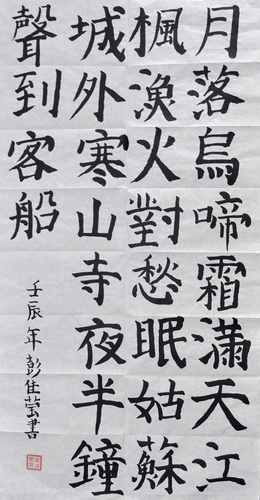 月落烏啼霜滿天江
楓漁火對愁眠姑蘇
城外寒山寺夜半鐘
聲到客船
壬辰年彭佳莹書